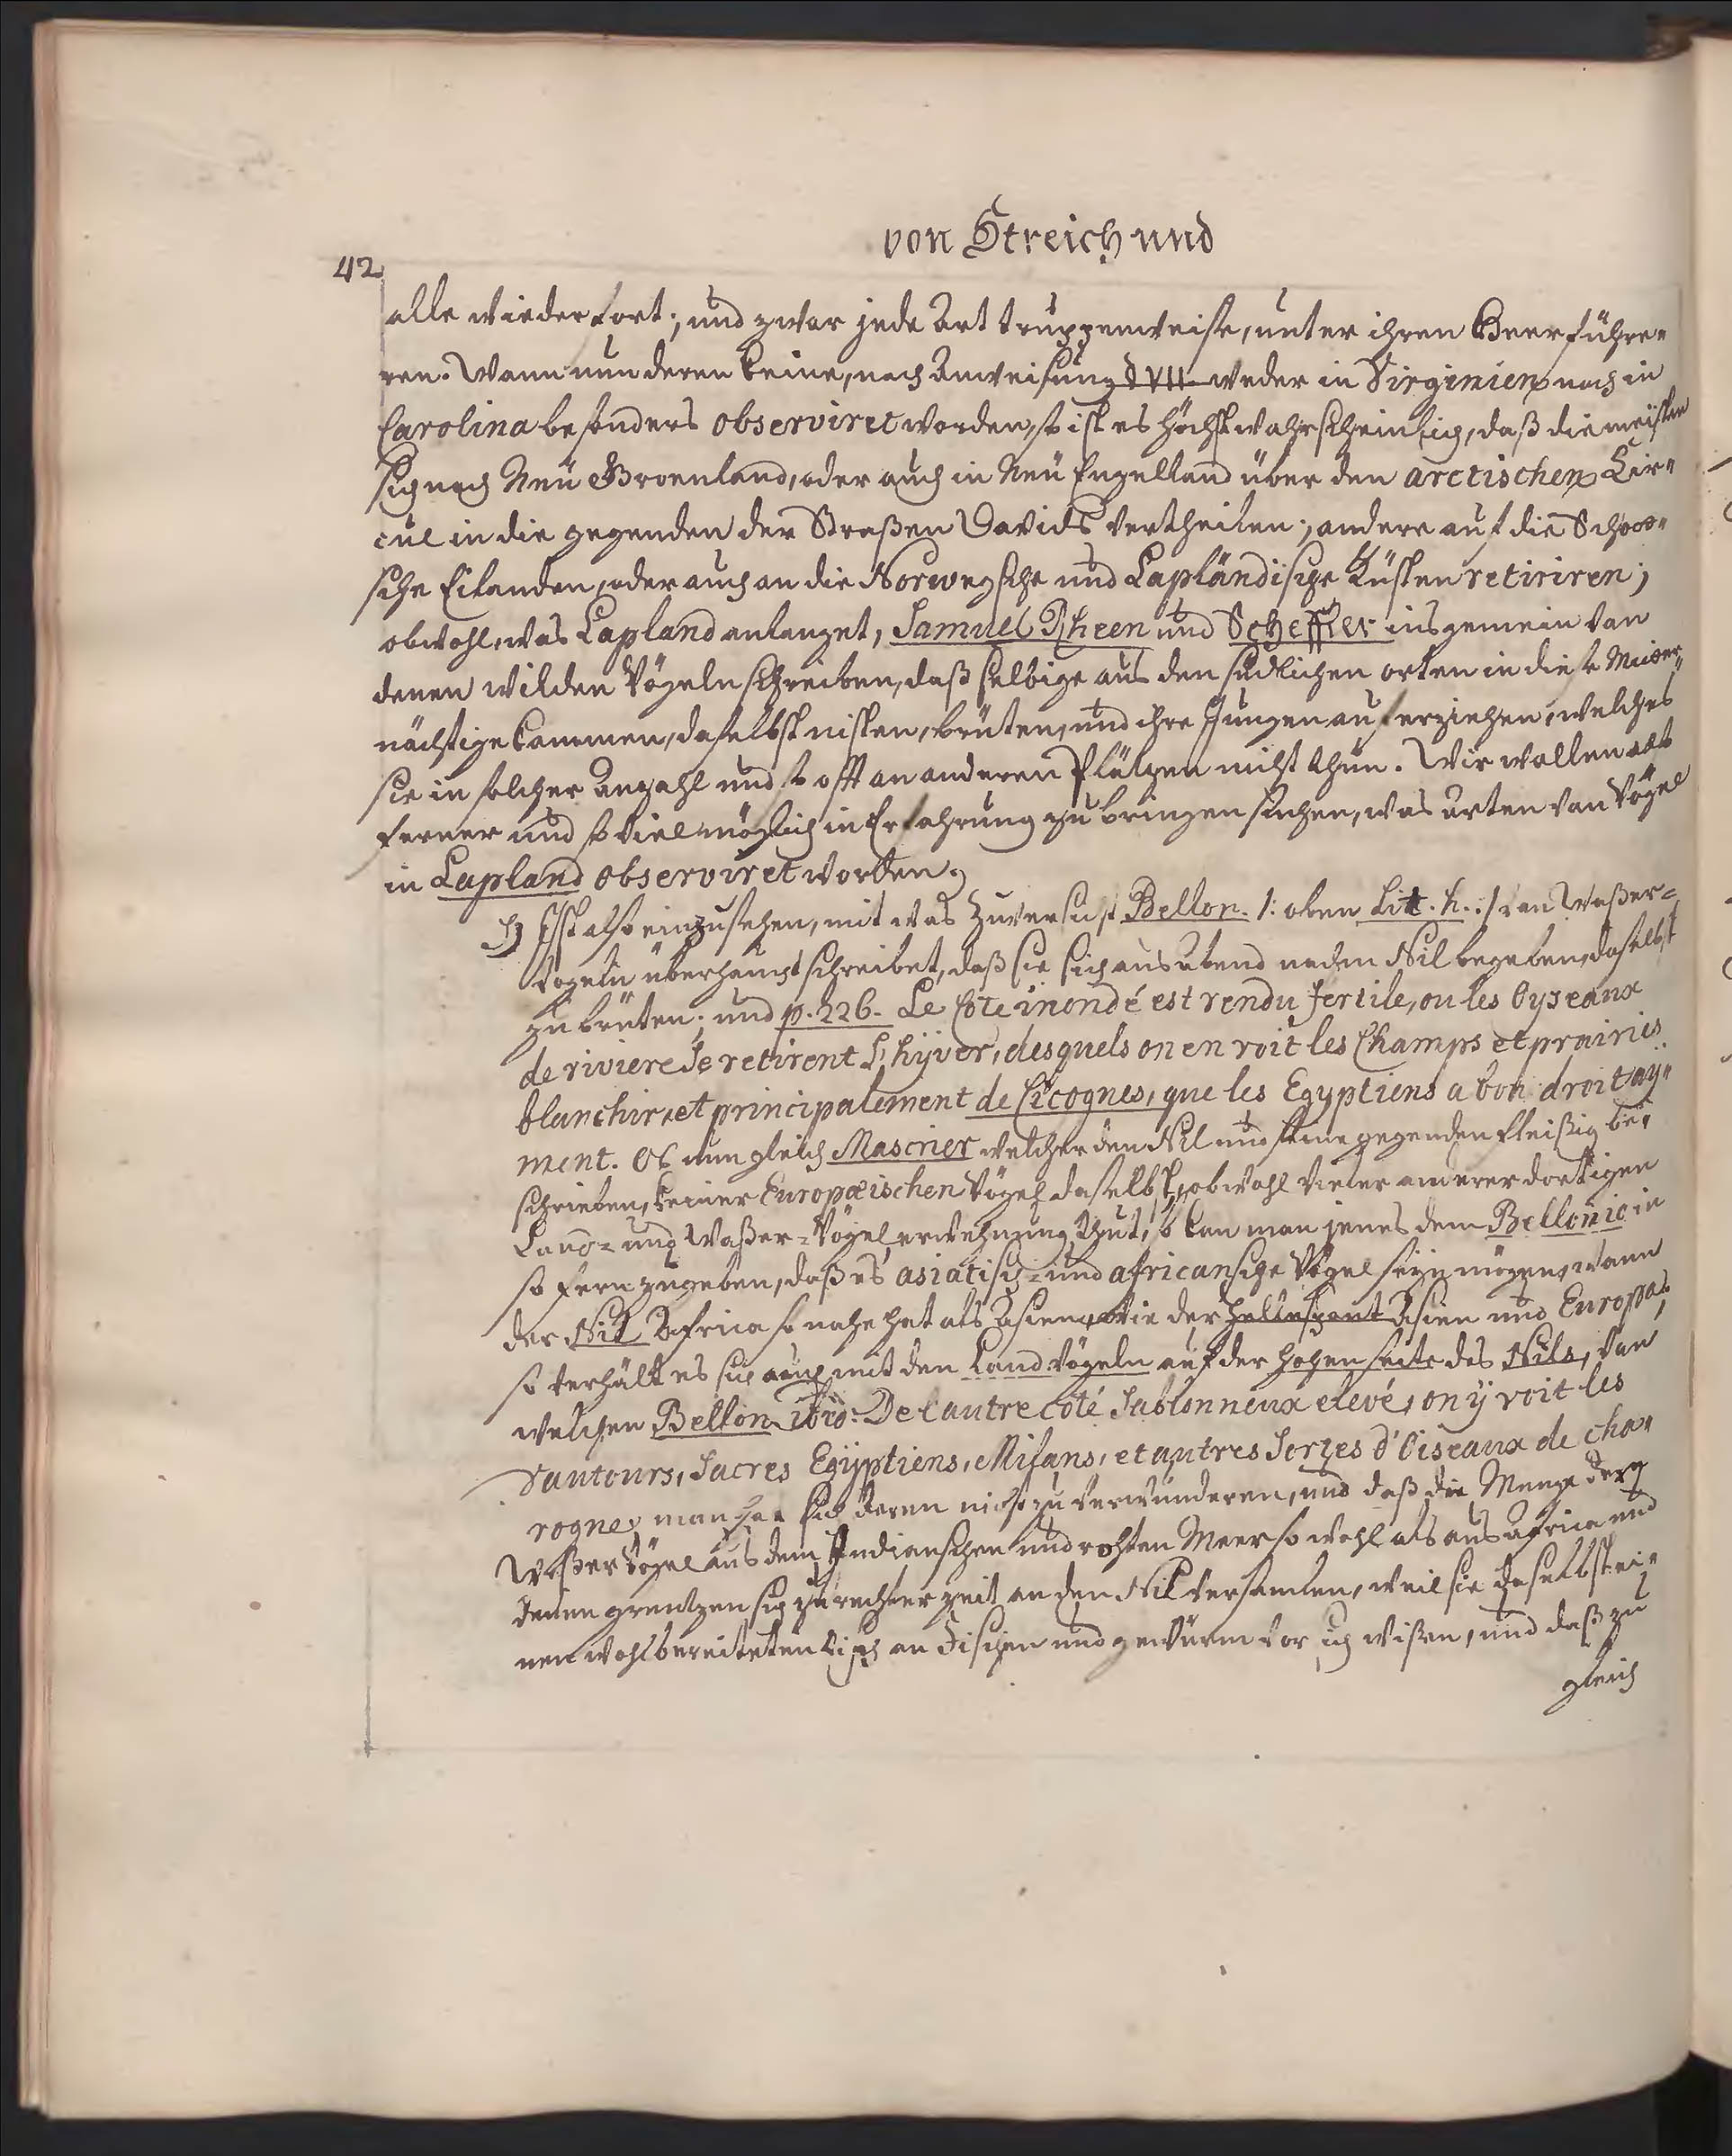 von Streich und
42
alle wieder fort; und zwar jede Art truppenweise, unter ihren Heerführe„
ren. Wann nun deren keine, nach Anweisung § VII weder in Virginien noch in
Carolina besonders observiret worden, so ist es höchst wahrscheinlich, daß die meisten
sich nach Neu Groenland, oder auch in Neu Engelland über den arctischen Cir„
cul in die gegenden der Straßen Davids vertheilen; andere auf die Schoo„
sche Eilanden, oder auch an die Norwegsche und Lapländische Küsten retiriren;
obwohl, was Lapland anlanget, Samuel Rheen und Scheffler ins gemein van
denen wilden Vögeln schreiben, daß selbige aus den südlichen orten in diese Mitter„
nächtige kommen, daselbst nisten, brüten, und ihre Jungen auferziehen, welches
sie in solcher Anzahl und so oft an anderen Plätzen nicht thun. Wir wollen als
ferner und so viel möglich in Erfahrung zu bringen suchen, was Arten van Vögel
in Lapland observiret worden.
Ist also einzusehen, mit was Zuversicht Bellon. /: oben Litt. h. :/ van Waßer=
Vögeln überhaupt schreibet, daß sie sich aus Abend nach dem Nil begeben, daselbst
zu brüten; und p. 226. Le Cote inondé est rendu fertile, ou les Oyseaux
de riviere se retirent L'hyver, desquels on en voit les Champs et prairies
blanchir, et principalement de Cicognes, que les Egyptiens a bon droit ay„
ment. Ob nun gleich Mascrier welcher den Nil und seine gegenden fleißig be„
schrieben, keiner Europæischen Vögel daselbst, obwohl vieler anderer dortigen
Land= und Waßer=Vögel erwehnung thut, so kan man jenes dem Bellonio in
so fern zugeben, daß es asiatisch= und africansche Vögel seyn mögen, wann
der Nil Africa so nahe hat als Asien, wie der Hellespont Asien und Europa;
so verhält es sich auch mit den Land Vögeln auf der hohen seite des Nils, van
welchen Bellon ibid: De l'autre coté Sablonneux elevé, on ÿ voit les
Vautours, Sacres Egÿptiens, Milans, et autres Sortes d'Oiseaux de cha„
rogne; man hat sich deren nicht zu verwunderen, und daß die Menge derg
Waßer Vögel aus dem Indianschen und rohten Meer so wohl als aus Africa und
denen grentzen sich zu rechter zeit an den Nil versamlen, weil sie daselbst ei„
nen wohlbereiteten Tisch an Fischen und gewürm vor sich wißen, und daß zu
gleich